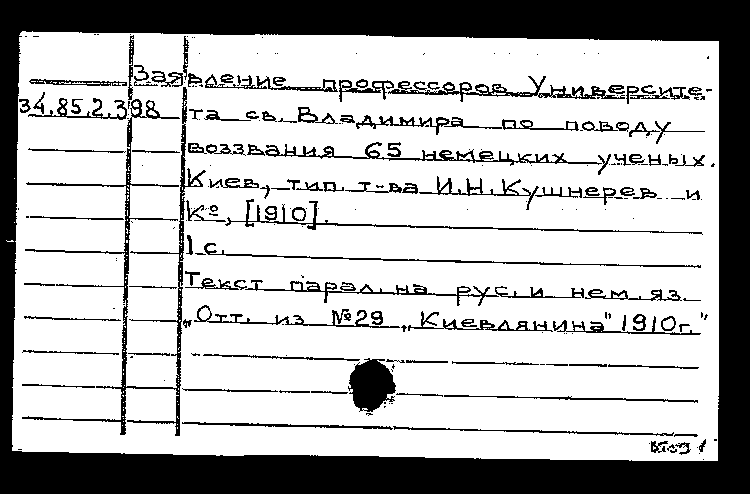 Заявление профессоров Университе-
34.85.2.398 та св. Владимира по поводу
воззвания 65 немецких ученых.
Киев, тип. т-ва И.Н.Кушнерев и
К⁰, [1910].
1 с.
Текст парал. на рус. и нем. яз.
„Отт. из №29 „Киевлянина" 1910г."